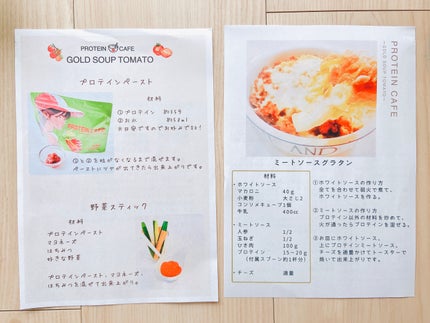 PROTEIN CAFE
GOLD SOUP TOMATO
プロテインペースト
材料
①プロテイン 約35g
②お水
②と②を粒がなくなるまで混ぜます。
ペーストにツヤが出てきたら出来上がりです。
野菜スティック
材料
プロテインペースト
マヨネーズ
はちみつ
好きな野菜
プロテインペースト、マヨネーズ、
はちみつを混ぜて出来上がり。
PROTEIN CAFE
~GOLD SOUP TOMATO~
ミートソースグラタン
材料
・ホワイトソース
マカロニ 40g
小麦粉 大さじ2
コンソメキューブ1個
牛乳 400cc
・ミートソース
人参 1/2
玉ねぎ 1/2
ひき肉 100g
プロテイン 15~20g
(付属スプーン約1杯分)
・チーズ 適量
①ホワイトソースの作り方
全てを合わせて弱火で煮て、
ホワイトソースを作る。
②ミートソースの作り方
プロテイン以外の材料を炒めて、
火が通ったらプロテインを混ぜる。
③お皿にホワイトソース、
上にプロテインミートソース、
チーズを適量かけてトースターで
焼いて出来上がりです。